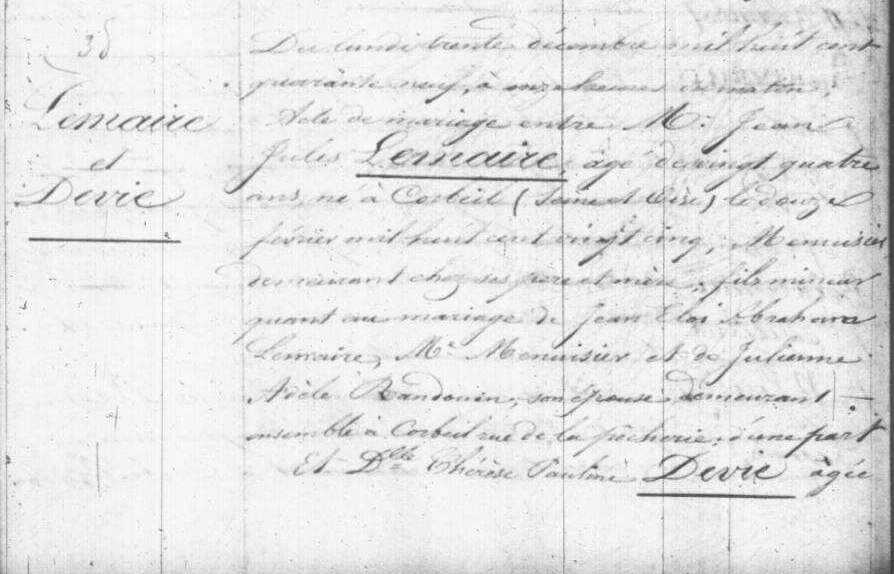 35
Lemaire
et
Devie
Du lundi trente décembre mil huit cent
quarante neuf, à onze heures du matin.
Acte de mariage entre M. Jean
Jules Lemaire, âgé de vingt quatre
ans, né à Corbeil (Seine et Oise) le douze
février mil huit cent vingt cinq, Menuisier,
demeurant chez ses père et mère, fils mineur
quant au mariage de Jean Eloi Abraham
Lemaire, Md Menuisier et de Julienne
Adèle Baudouin, son épouse demeurant
ensemble à Corbeil rue de la pêcherie, d'une part
Et Dlle Thérèse Pauline Devie âgée